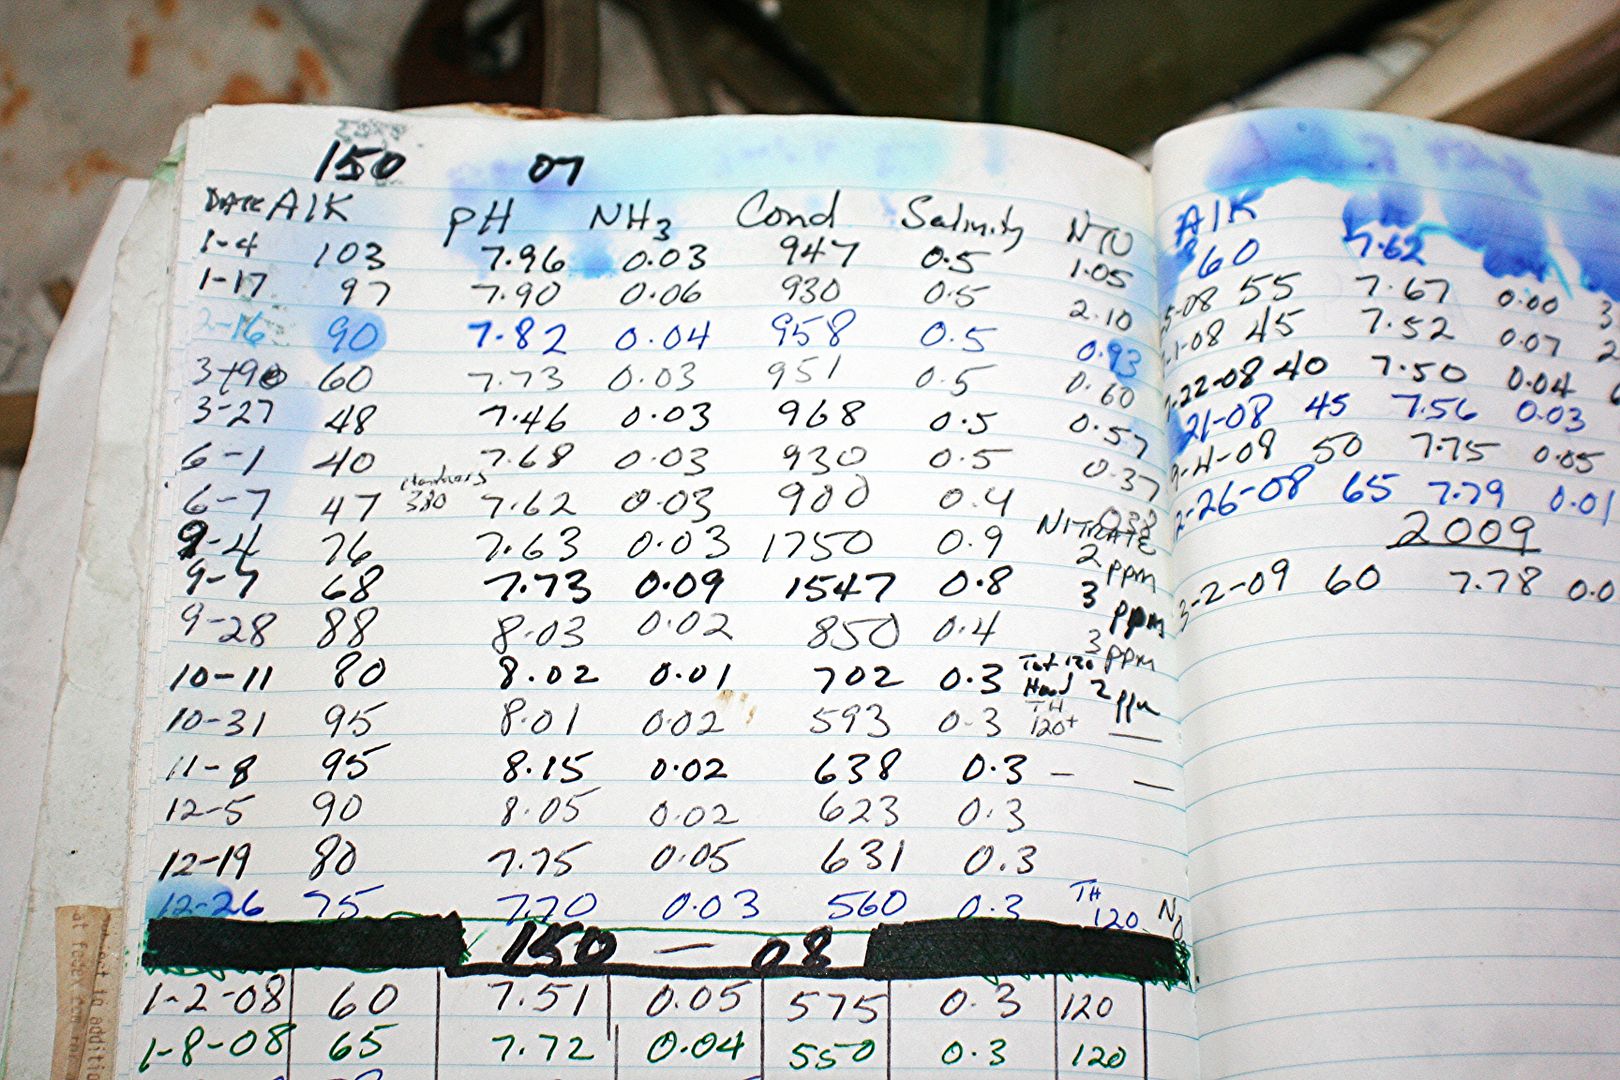 150 07
DATE AlK pH NH3 Cond Salinity NTU
1-4 103 7.96 0.03 947 0.5 1.05
1-17 97 7.90 0.06 930 0.5 2.10
2-16 90 7.82 0.04 958 0.5 0.93
60 7.73 0.03 951 0.5 0.60
3-27 48 7.46 0.03 968 0.5 0.57
6-1 40 7.68 0.03 930 0.5 0.37
6-7 47 380 7.62 0.03 900 0.4 0.38
9-4 76 7.63 0.03 1750 0.9 NITRATE 2 ppm
9-7 68 7.73 0.09 1547 0.8 3 ppm
9-28 88 8.03 0.02 850 0.4 3 ppm
10-11 80 8.02 0.01 702 0.3 Tot 120 Hard 2 ppm
10-31 95 8.01 0.02 593 0.3 TH 120+ —
11-8 95 8.15 0.02 638 0.3 — —
12-5 90 8.05 0.02 623 0.3
12-19 80 7.75 0.05 631 0.3
12-26 75 7.70 0.03 560 0.3 TH 120
150 — 08
1-2-08 60 7.51 0.05 575 0.3 120
1-8-08 65 7.72 0.04 550 0.3 120
AlK
60 7.62
5-08 55 7.67 0.00 3
1-08 45 7.52 0.07 2
22-08 40 7.50 0.04
21-08 45 7.56 0.03
9-4-08 50 7.75 0.05
2-26-08 65 7.79 0.01
2009
3-2-09 60 7.78 0.0